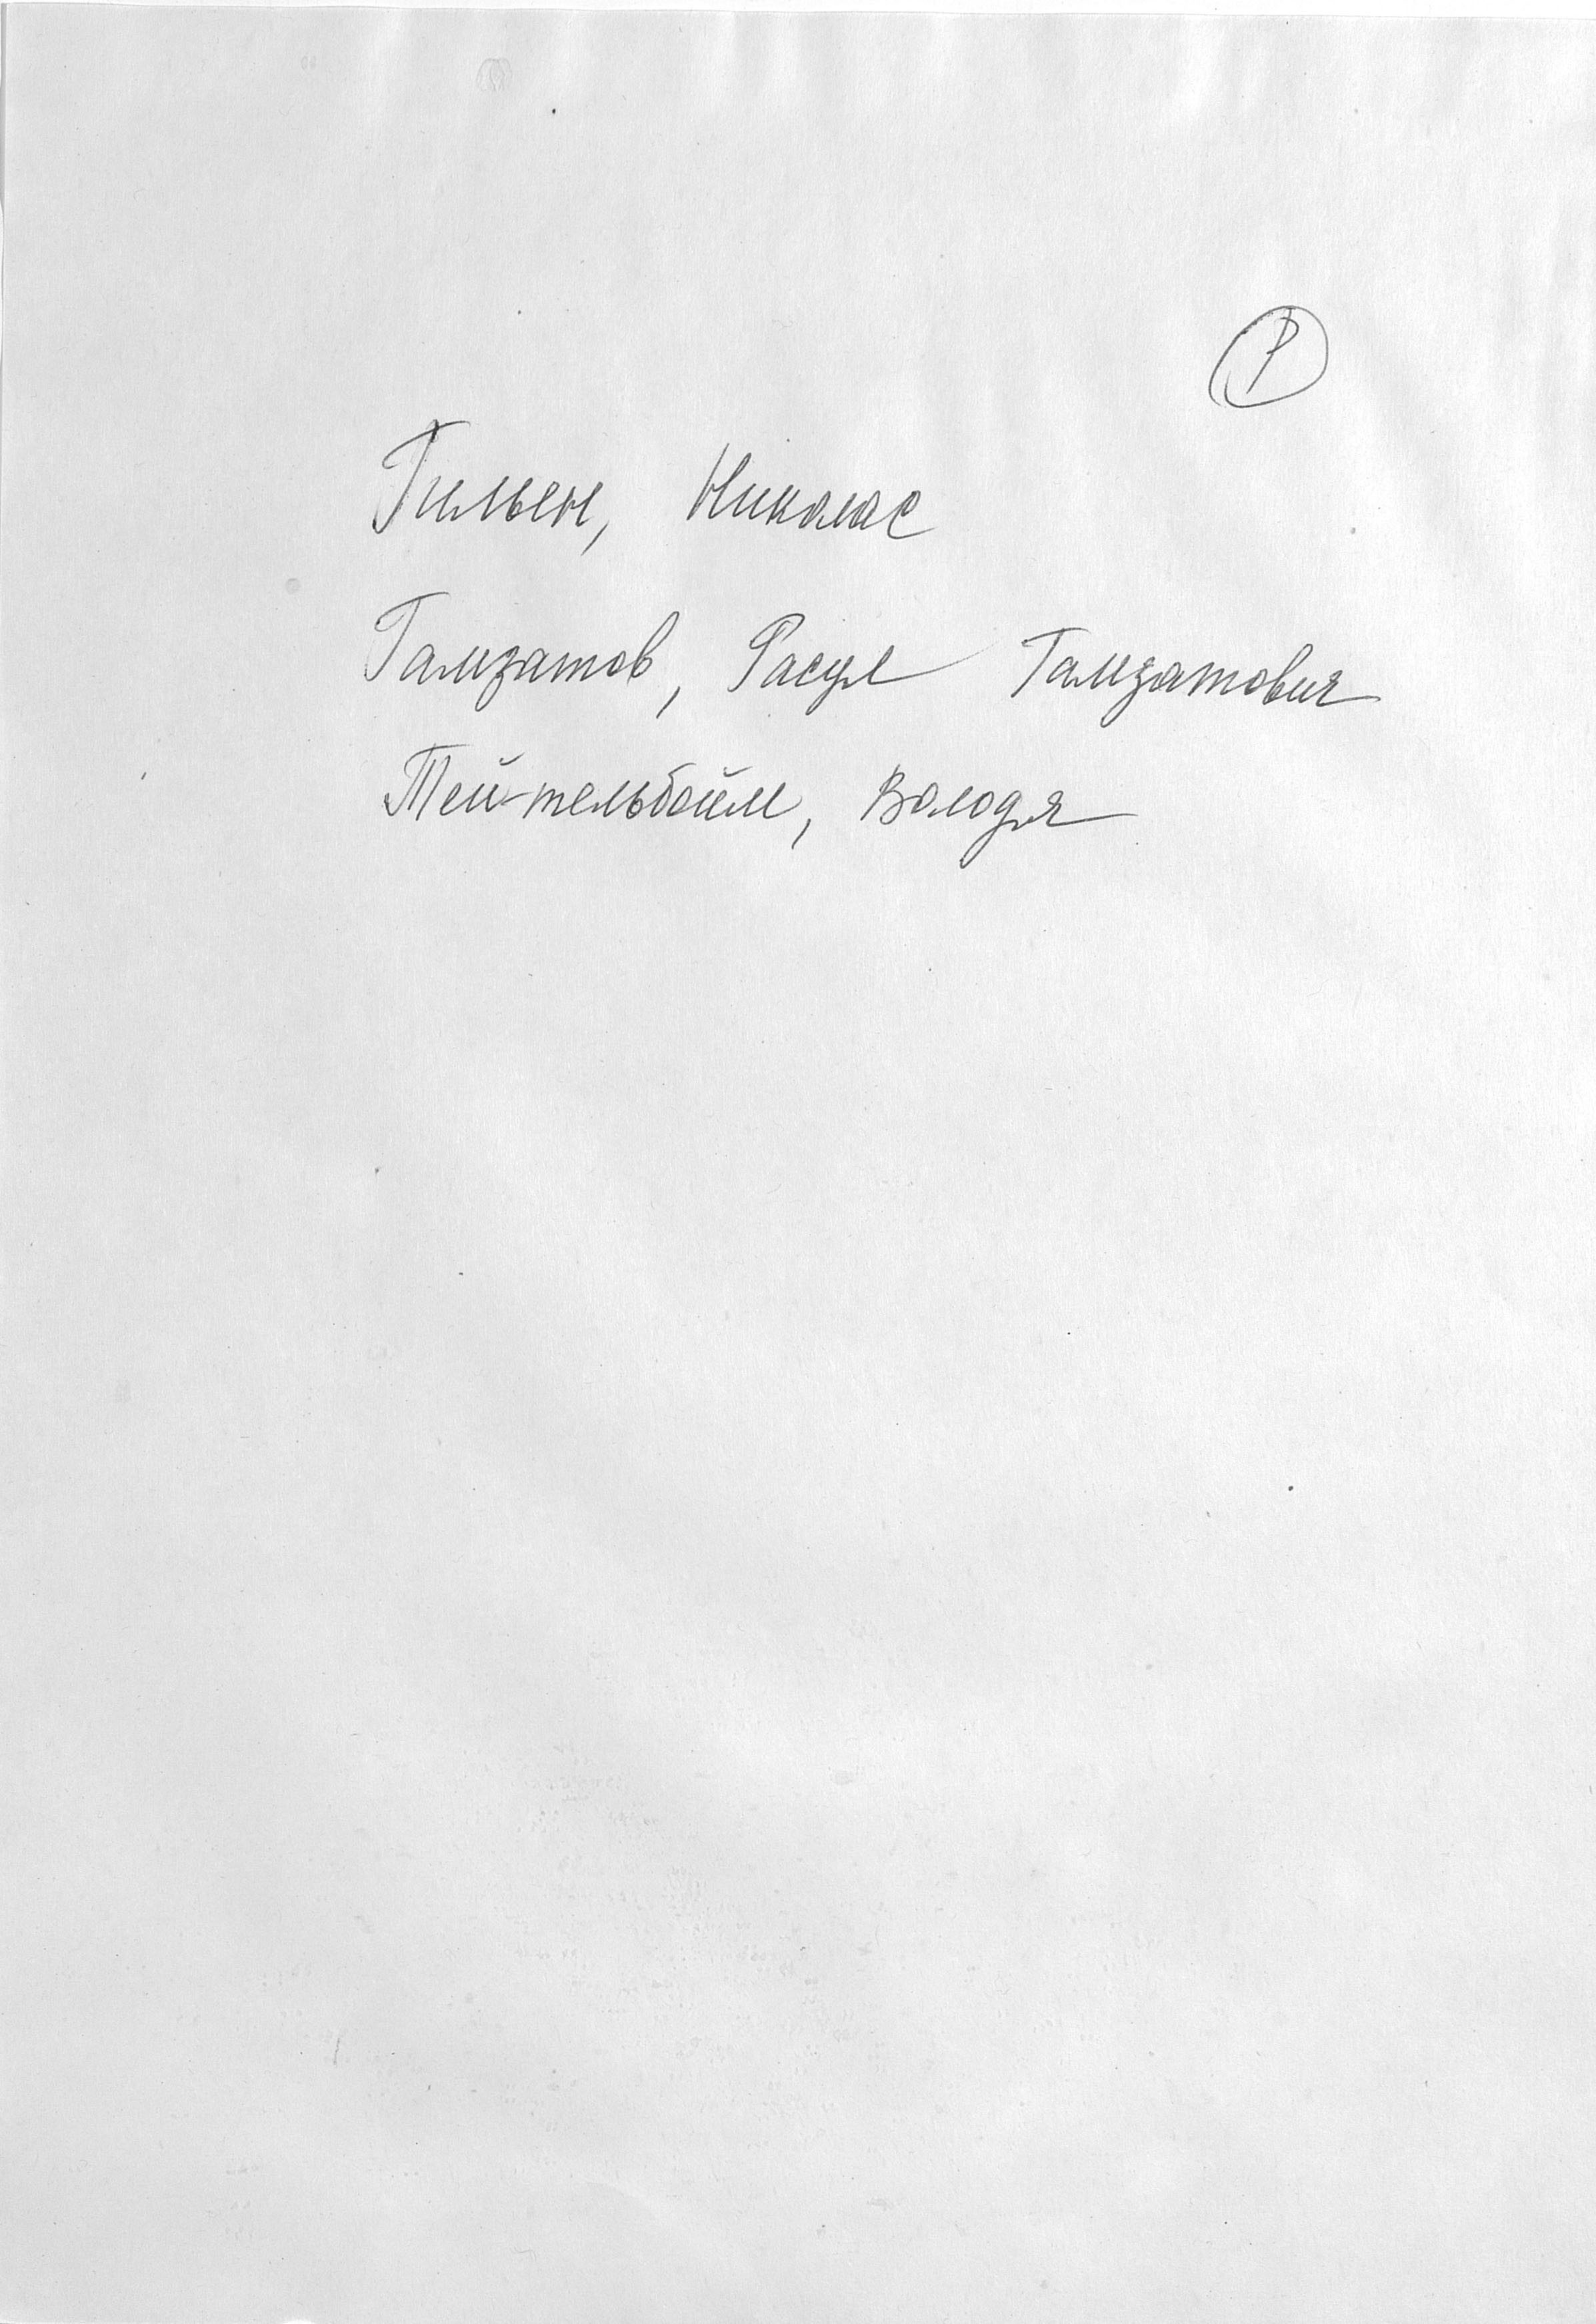 Р
Гильен, Николас
Гамзатов, Расул Гамзатович
Тейтельбойм, Володя